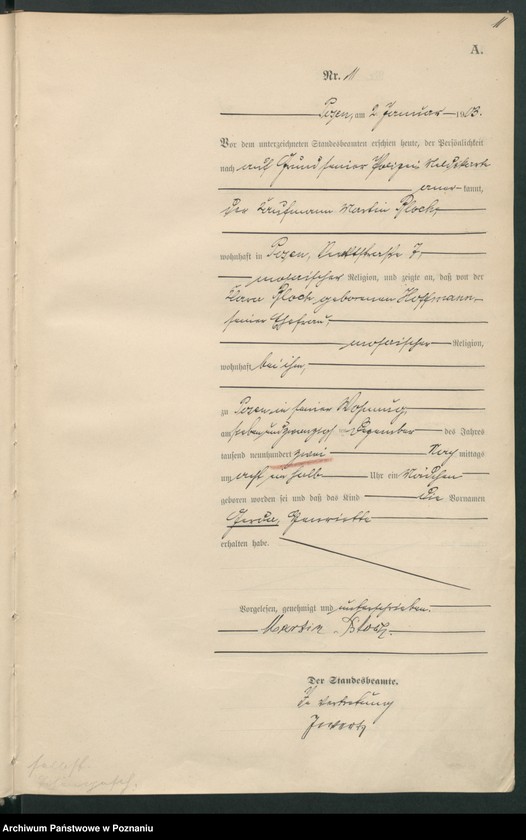 11
A.
Nr. 11
Posen, am 2 Januar 1903.
Vor dem unterzeichneten Standesbeamten erschien heute, der Persönlichkeit
nach auf Grund seiner Polizei Meldekarte
aner kannt,
der Kaufmann Martin Bloch,
wohnhaft in Posen, 7,
mosaischer Religion, und zeigte an, daß von der
Clara Bloch, geborenen Hoffmann,
seiner Ehefrau,
mosaischer Religion,
wohnhaft bei ihm,
zu Posen, in seiner Wohnung,
am siebenundzwanzigsten Dezember des Jahres
tausend neunhundert zwei Nach mittags
um acht ein halb Uhr ein Mädchen
geboren worden sei und daß das Kind die Vornamen
Gerda, Henriette
erhalten habe.
Vorgelesen, genehmigt und unterschrieben.
Martin Bloch
Der Standesbeamte.
In Vertretung
Archiwum Państwowe w Poznaniu